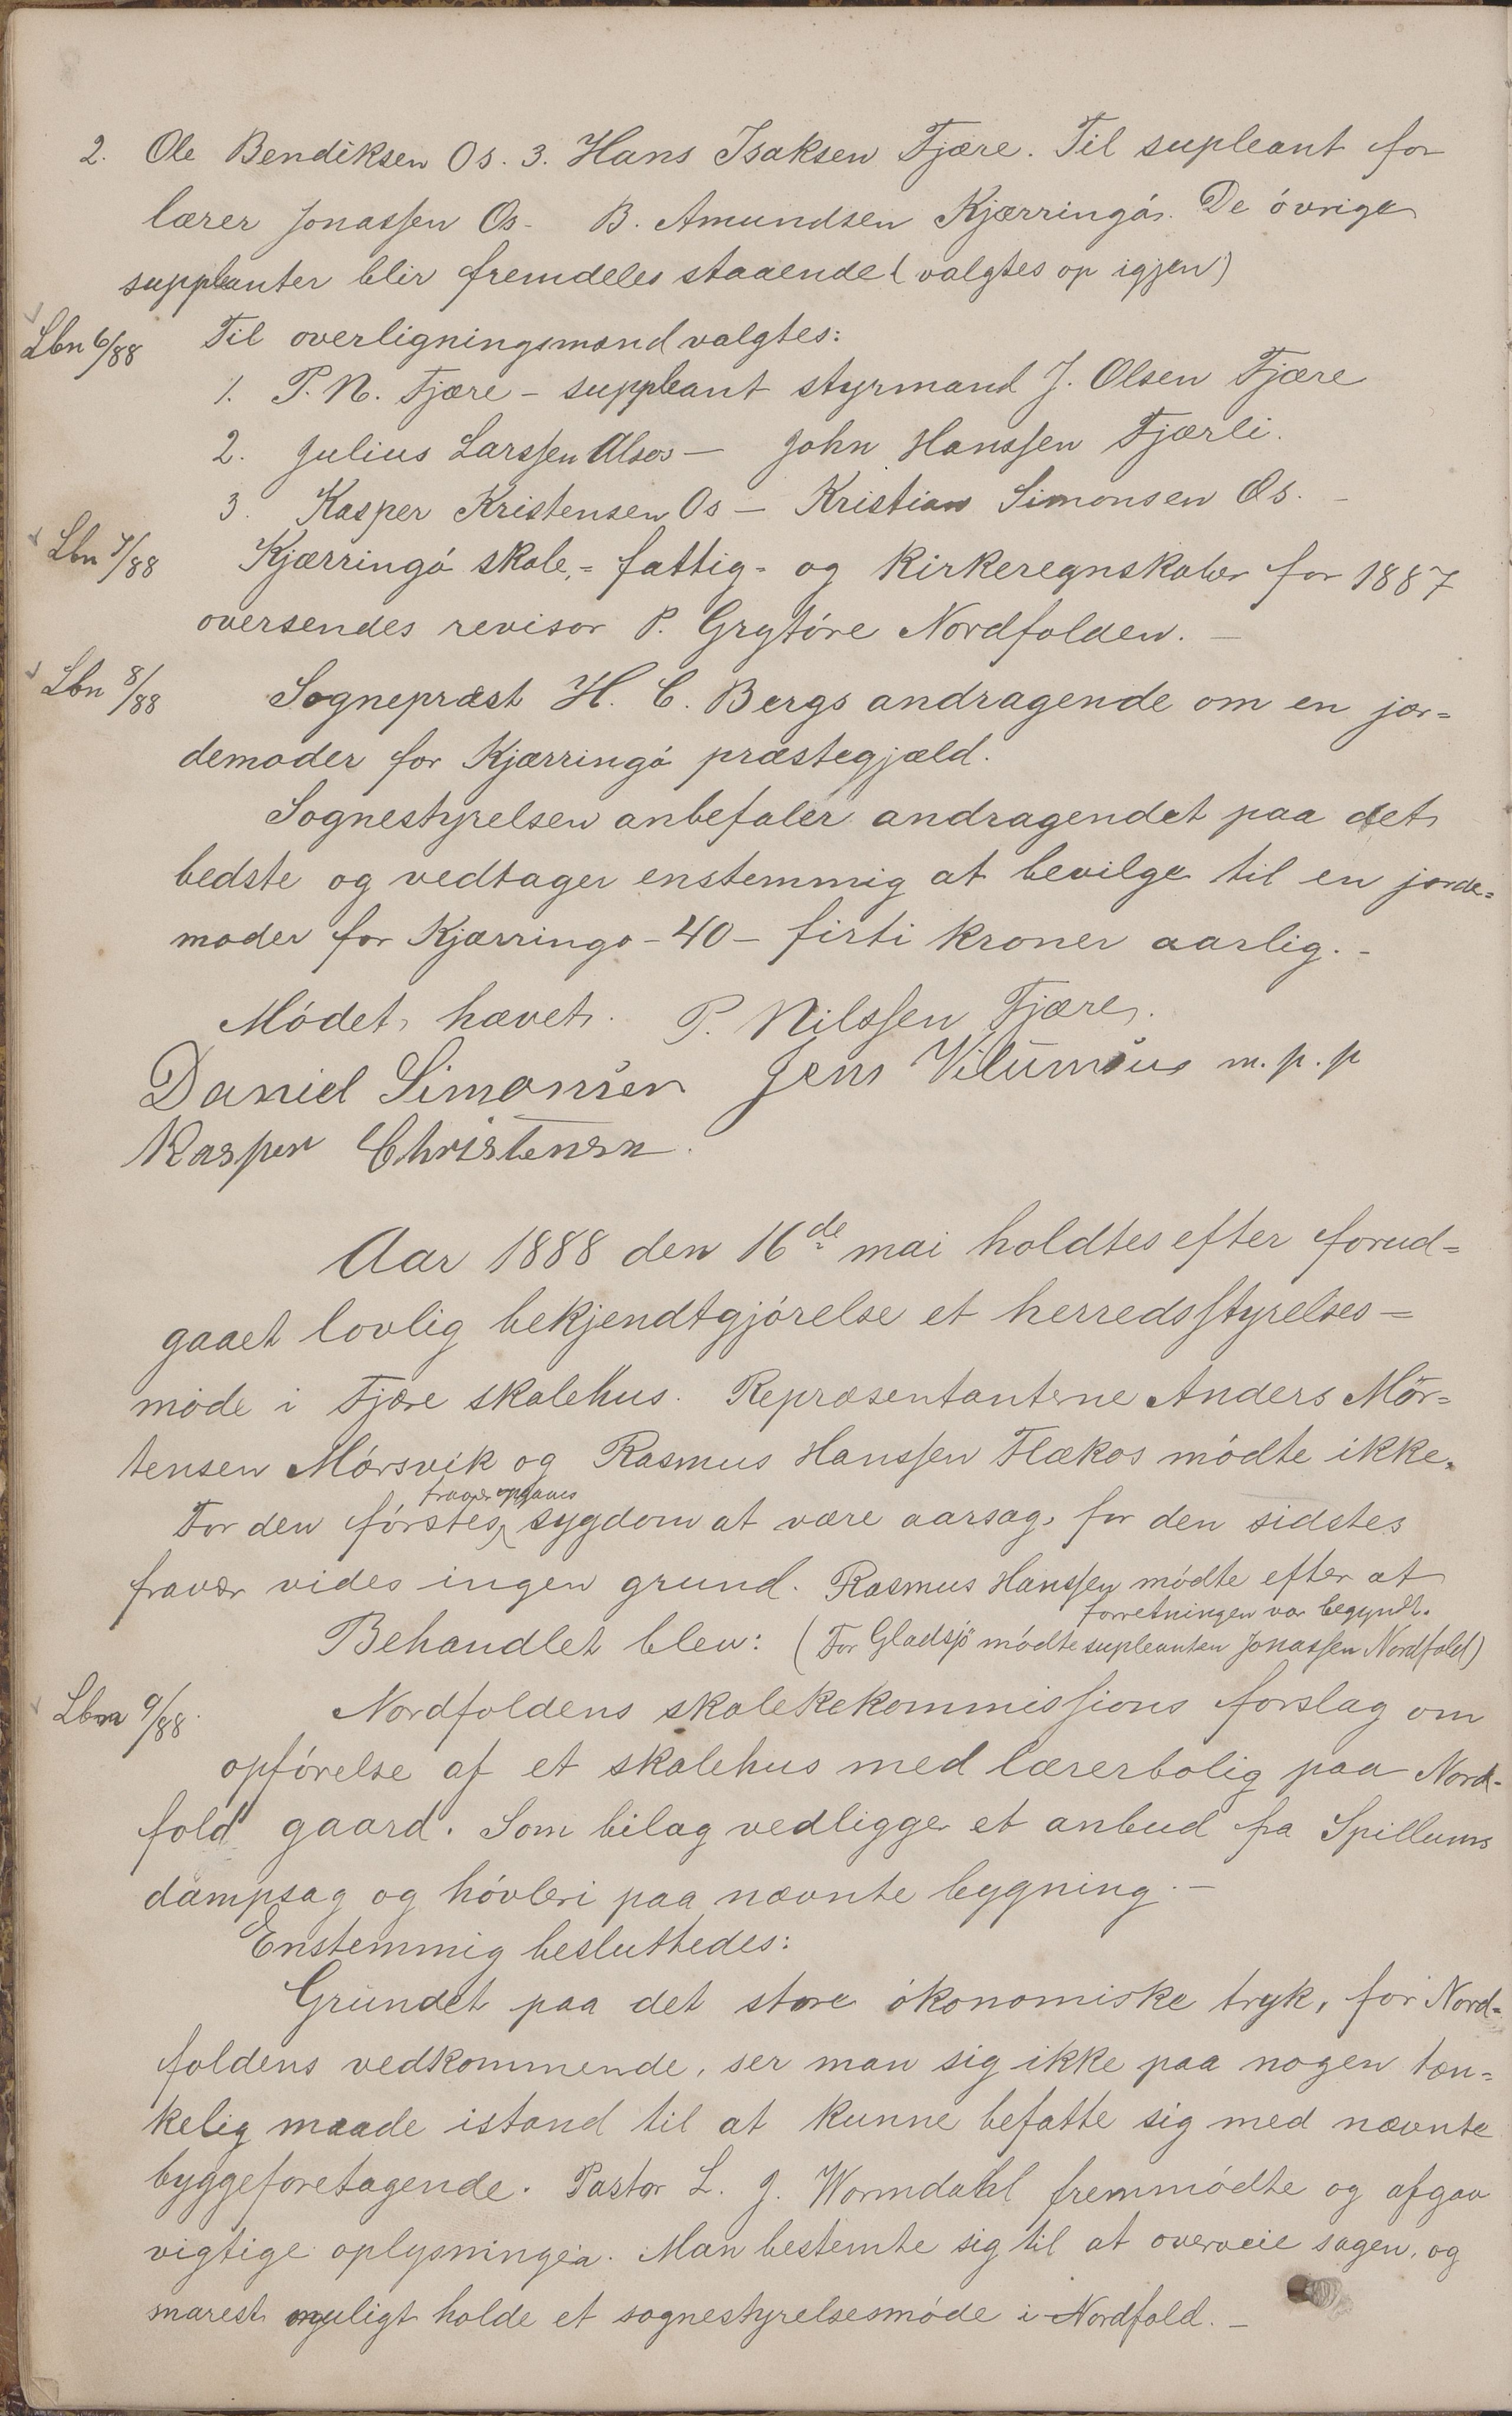 2. Ole Bendiksen Os. 3. Hans Isaksen Fjære. Til supleant for
lærer Jonassen Os - B. Amundsen Kjærringó. De óvrige
suppleanter blir fremdeles staaende (valgtes op igjen)
Lbn 6/88 Til overligningsmænd valgtes:
1. P. N. Fjære - suppleant styrmand J. Olsen Fjære
2. Julius Larssen Alsos - John Hanssen Fjærli.
3. Kasper Kristensen Os - Kristian Simonsen Os. -
Lbn 7/88 Kjærringó skole,= fattig- og kirkeregnskaber for 1887
oversendes revisor P. Grytóre Nordfolden. -
Lbn 8/88 Sognepræst H. C. Bergs andragende om en jor=
demoder for Kjærringó præstegjæld.
Sognestyrelsen anbefaler andragendet paa det
bedste og vedtager enstemmig at bevilge til en jorde=
moder for Kjærringo - 40 - firti kroner aarlig. -
Módet hævet. P. Nilssen Fjære.
Daniel Simonsen Jens m. p. p
Kasper Christensen.
Aar 1888 den 16de mai holdtes efter forud=
gaaet lovlig bekjendtgjórelse et herredsstyrelses=
móde i Fjære skolehus. Repræsentanterne Anders Mór=
tensen Mórsvik og Rasmus Hanssen Flækos módte ikke.
fravær opgaves
For den fórstes sygdom at være aarsag, for den sidstes
fravær vides ingen grund. Rasmus Hanssen módte efter at
forretningen var begyndt.
Behandlet blev: (For Gladsjö módte supleanten Jonassen Nordfold)
Lbn 9/88. Nordfoldens skolekekommissions forslag om
opfórelse af et skolehus med lærerbolig paa Nord-
fold gaard. Som bilag vedligger et anbud fra Spillums
dampsag og hóvleri paa nævnte bygning. -
Enstemmig besluttedes:
Grundet paa det store ókonomiske tryk, for Nord=
foldens vedkommende, ser man sig ikke paa nogen tæn=
kelig maade istand til at kunne befatte sig med nævnte
byggeforetagende. Pastor L. J. Wormdahl fremmódte og afgav
vigtige oplysninger. Man bestemte sig til at overveie sagen, og
snarest muligt holde et sognestyrelsesmóde i Nordfold. -